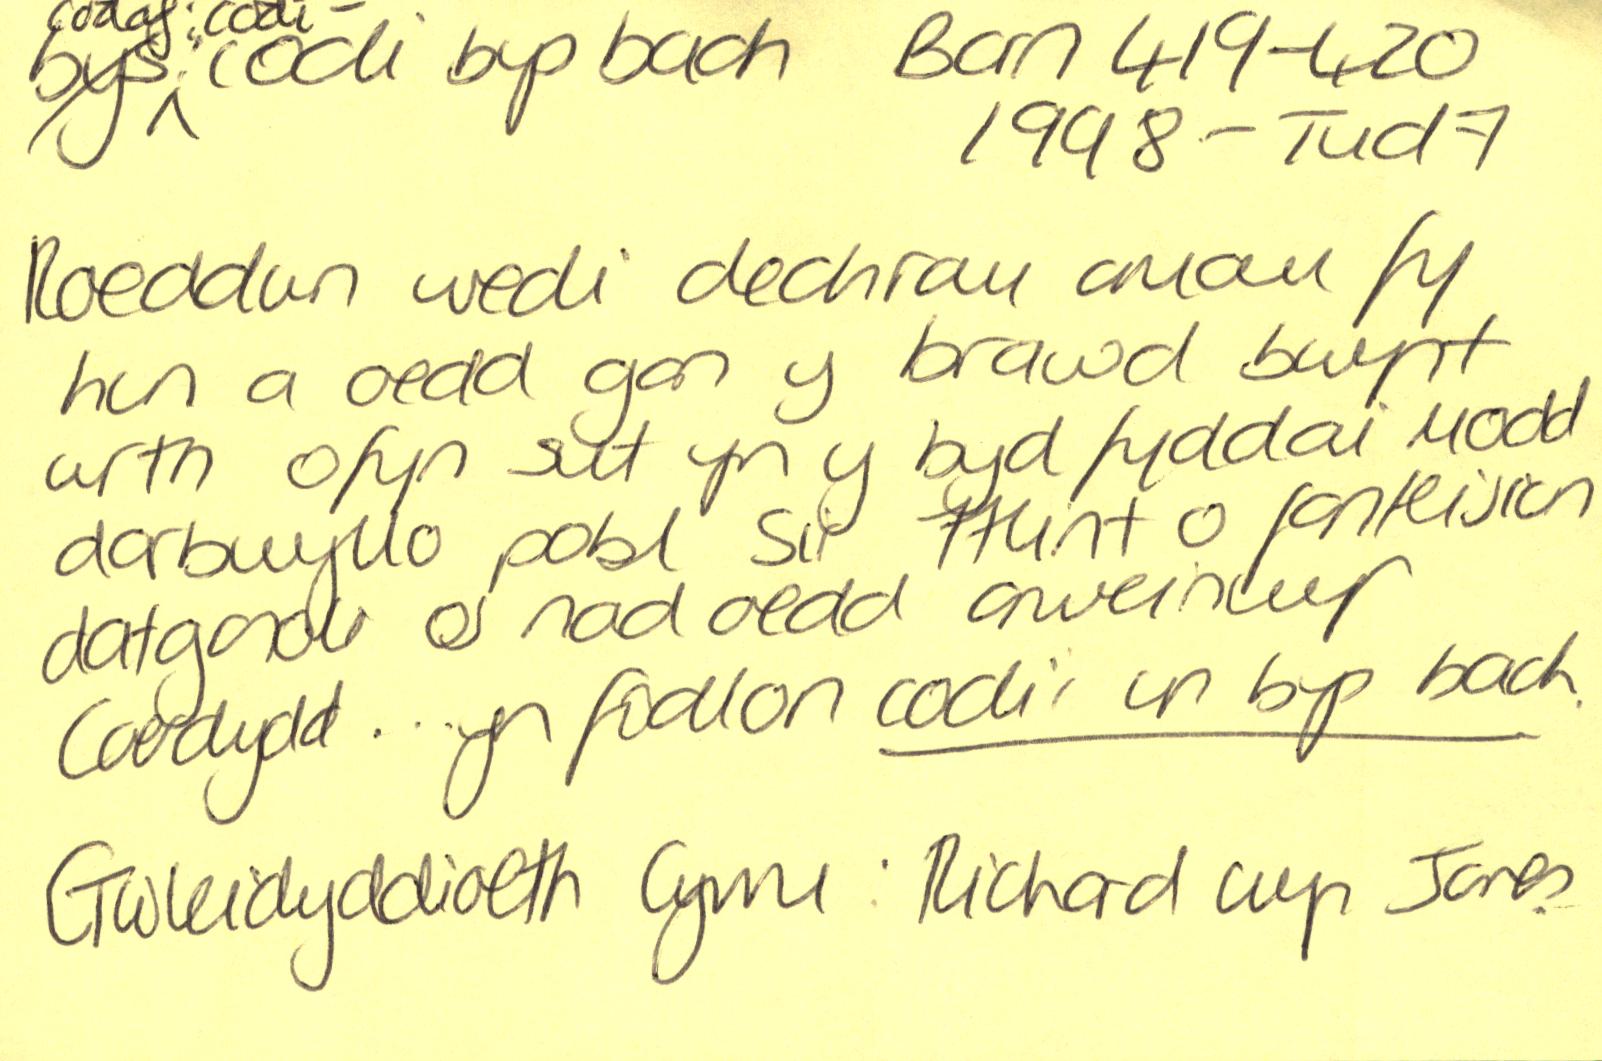 codaf: codi -
bys: codi bys bach Barn 419-420
1998 - Tud 7
Roeddwn wedi dechrau amau fy
hun a oedd gan y brawd bwynt
wrth ofyn sut yn y byd fyddai modd
darbwyllo pobl Sir Fflint o fanteision
datganoli os nad oedd arweinwyr
Caerdydd ... yn fodlon codi un bys bach.
Gwleidyddiaeth Cymru : Richard Wyn Jones